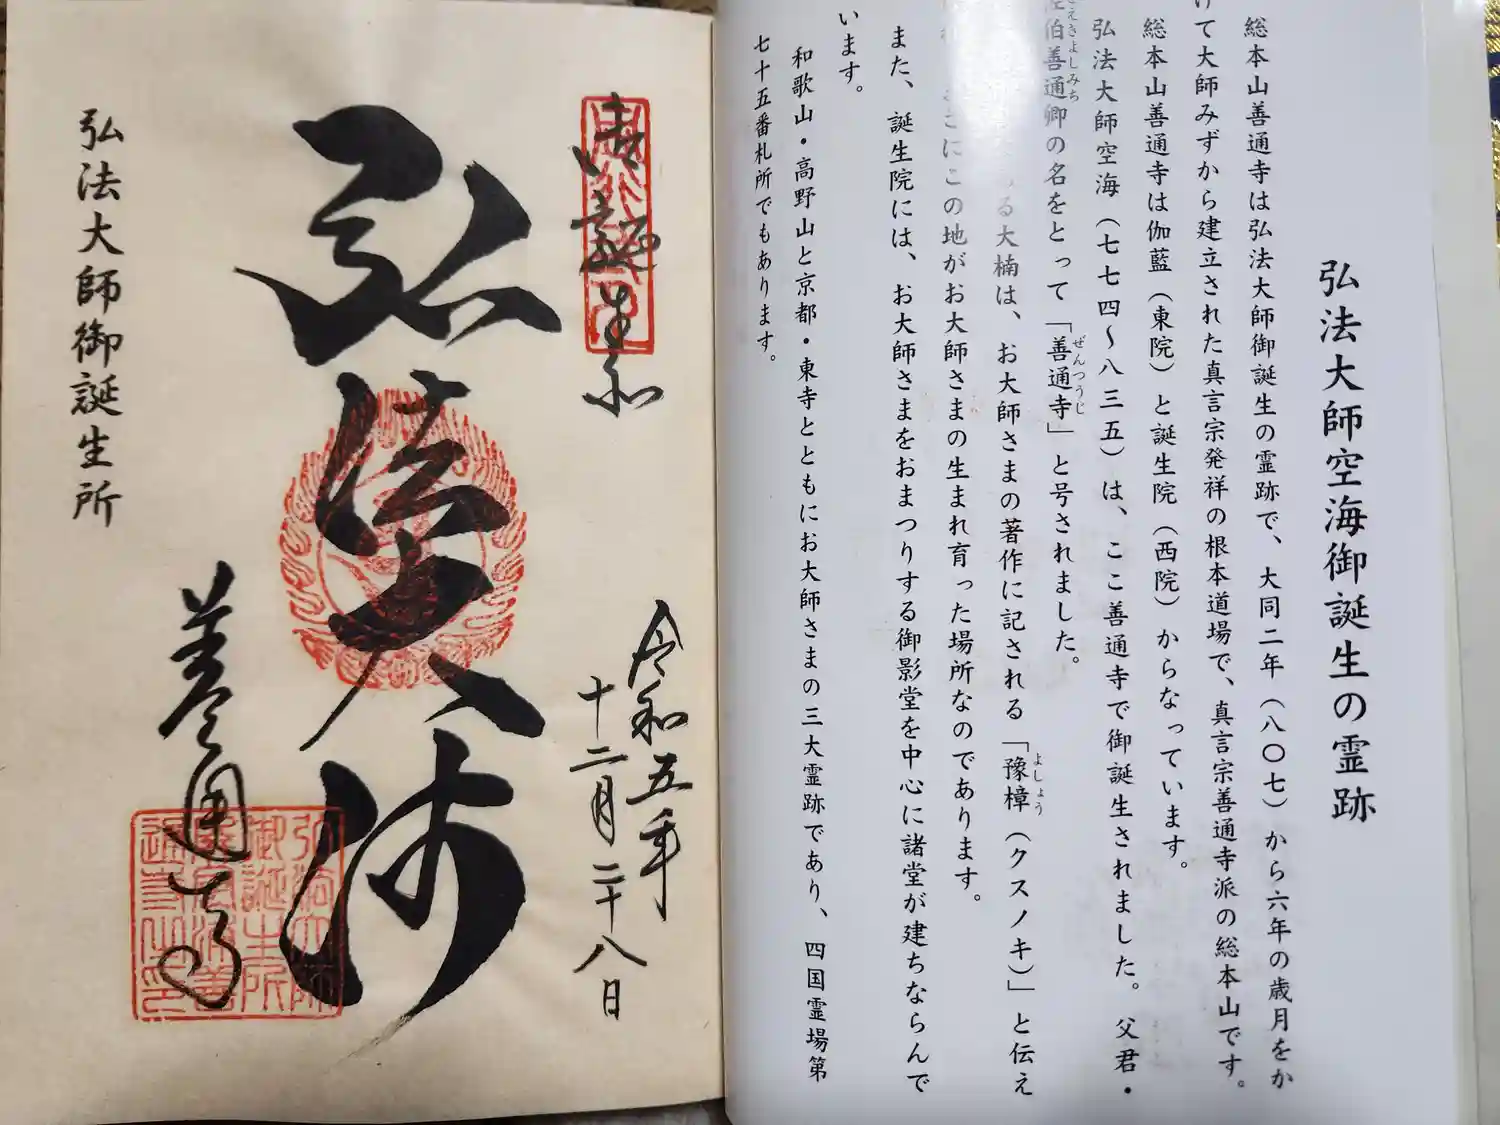 弘法大師空海御誕生の霊跡
総本山善通寺は弘法大師御誕生の霊跡で、大同二年（八〇七）から六年の歳月をか
けて大師みずから建立された真言宗発祥の根本道場で、真言宗善通寺派の総本山です。
総本山善通寺は伽藍（東院）と誕生院（西院）からなっています。
弘法大師空海（七七四～八三五）は、ここ善通寺で御誕生されました。父君・
佐伯善通卿の名をとって「善通寺」と号されました。
さえきよしみち
ぜんつうじ
る大楠は、お大師さまの著作に記される「豫樟（クスノキ）」と伝え
よしょう
にこの地がお大師さまの生まれ育った場所なのであります。
また、誕生院には、お大師さまをおまつりする御影堂を中心に諸堂が建ちならんで
います。
和歌山・高野山と京都・東寺とともにお大師さまの三大霊跡であり、四国霊場第
七十五番札所でもあります。
御誕生所
令和五年
十二月二十八日
弘法大師
善通寺
弘法大師御誕生所